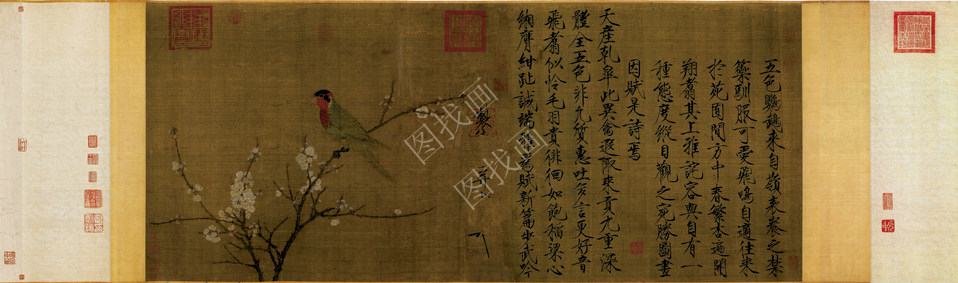 五色鸚鵡來自嶺表養之禁
籞馴服可愛飛鳴自適往來
於苑囿間方中春繁杏遍開
翔翥其上雅詫容與自有一
種態度縱目觀之宛勝圖畫
因賦是詩焉
天產乾皋此異禽遐陬來貢九重深
體全五色非凡質惠吐多言更好音
飛翥似憐毛羽貴徘徊如飽稻粱心
緗膺紺趾誠端雅為賦新篇步武吟
图找画
图找画